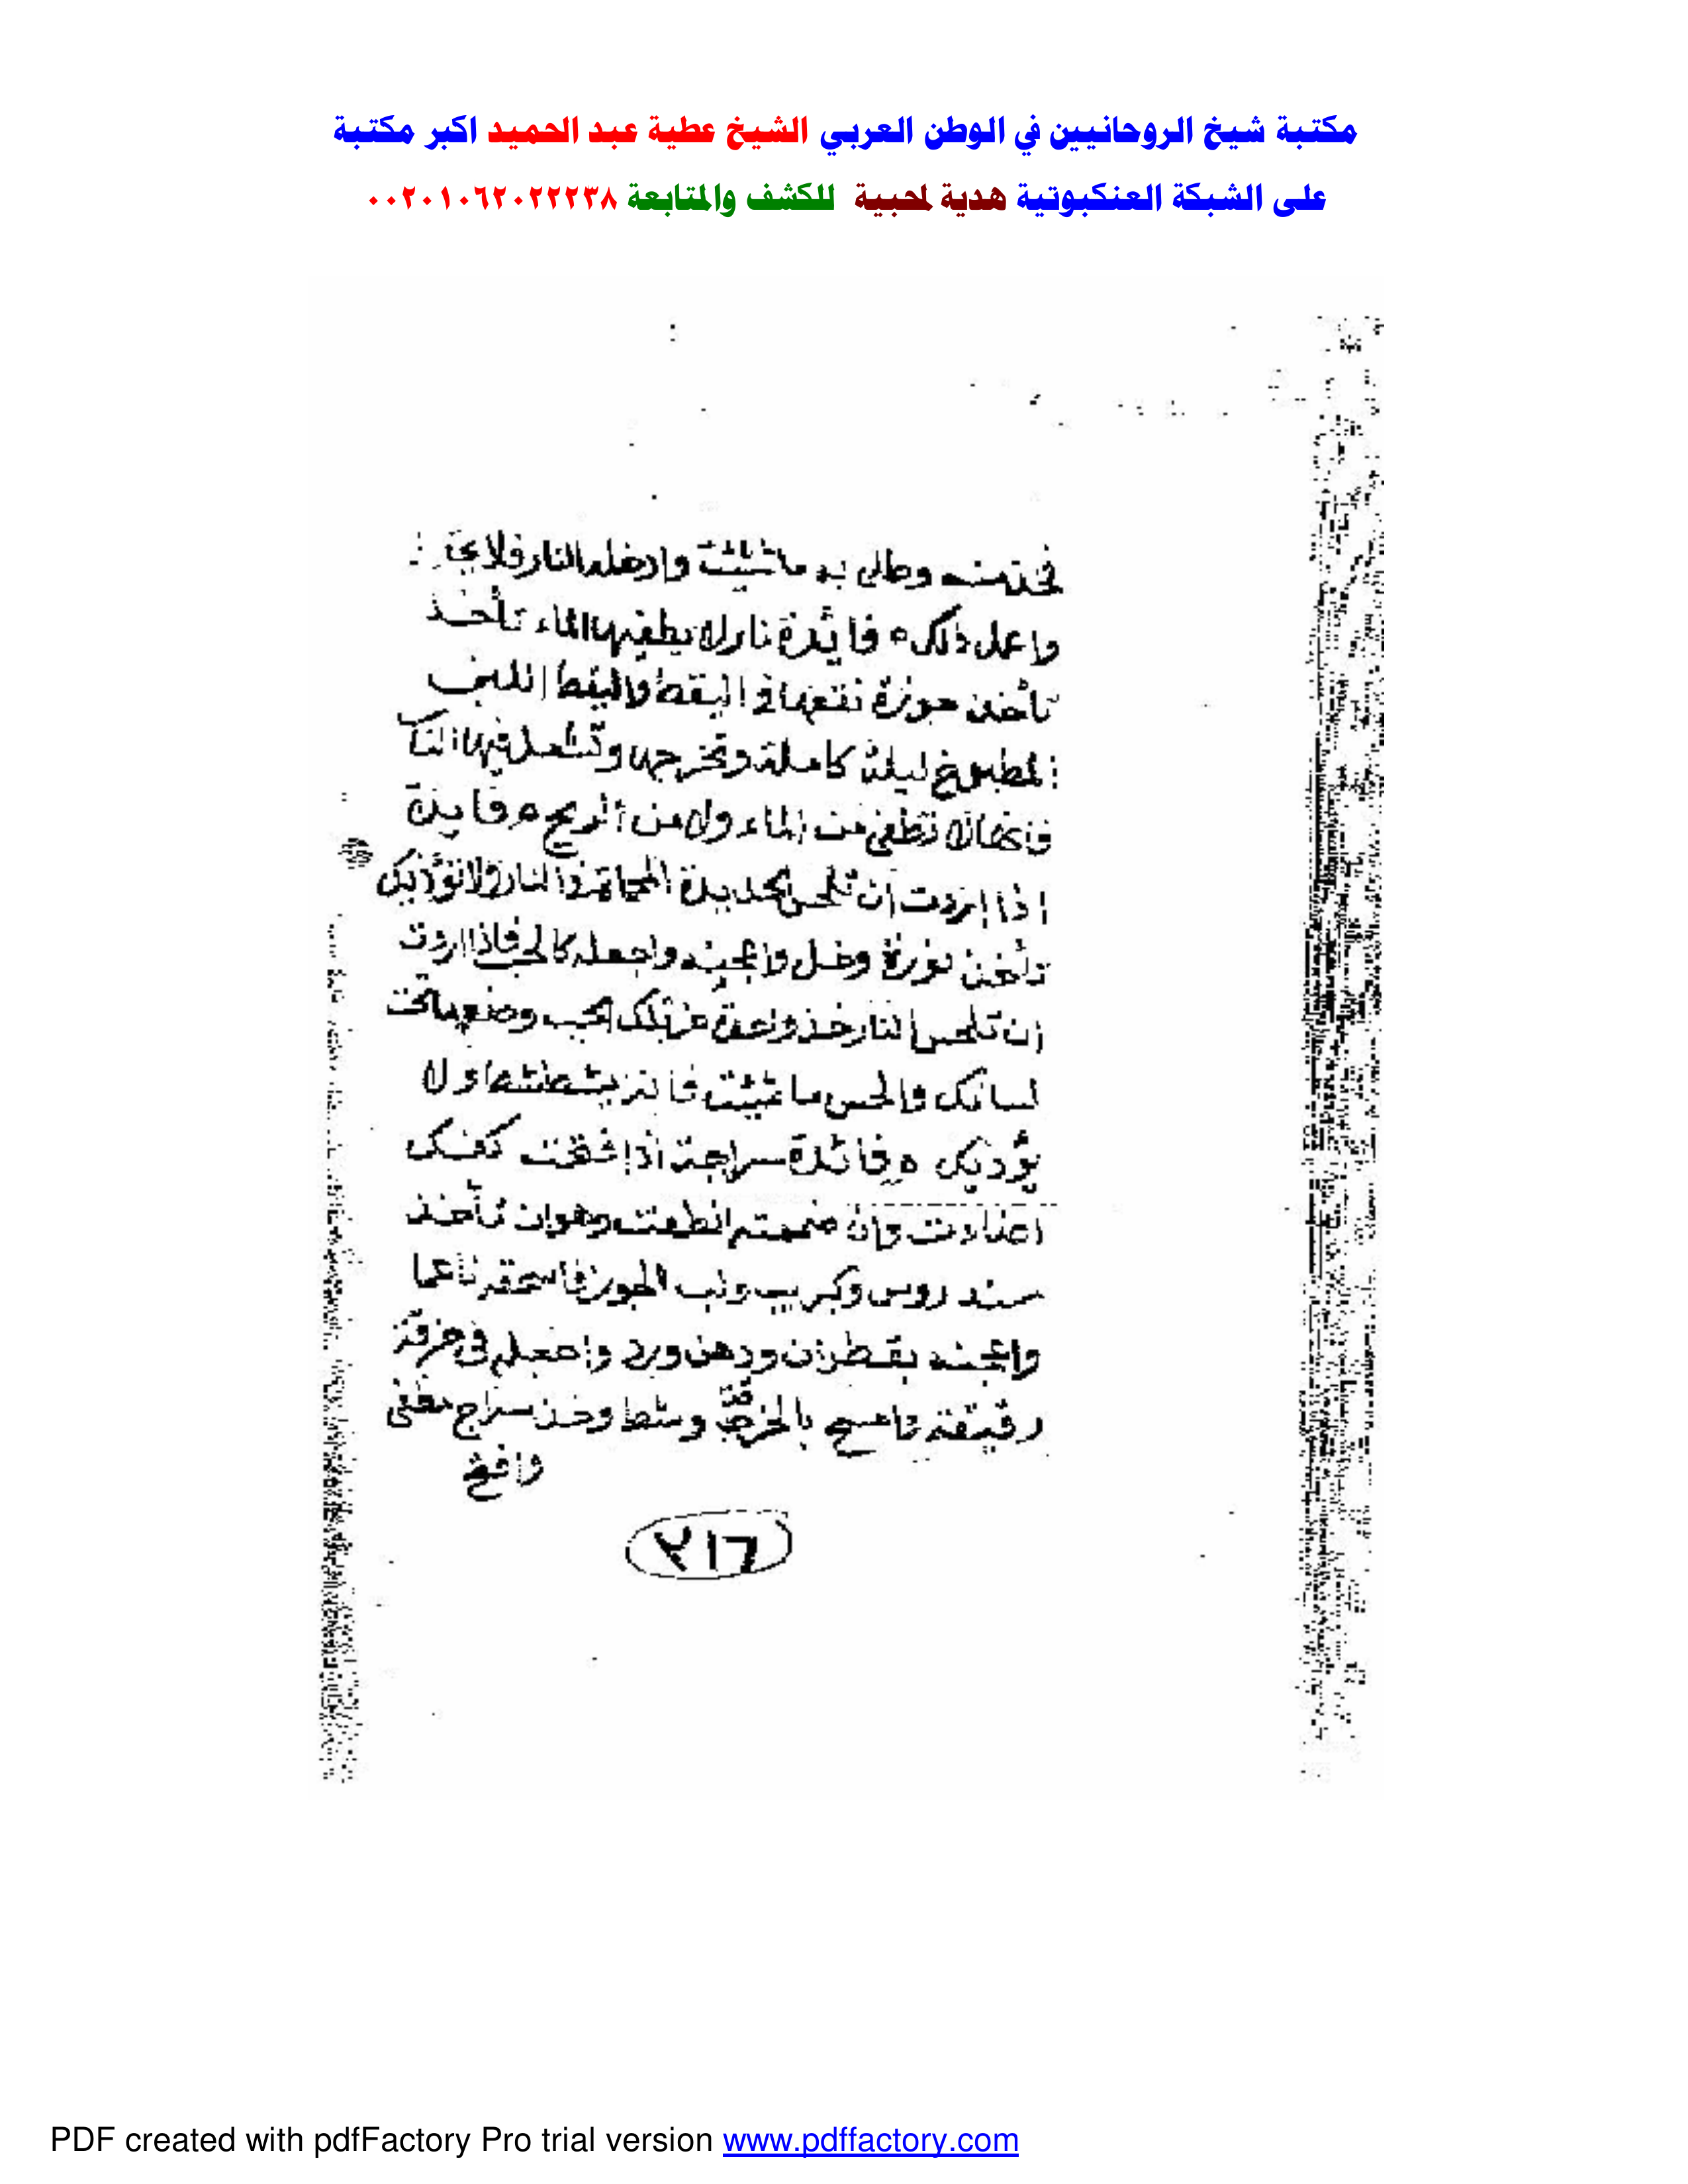 مكتبة شيخ الروحانيين في الوطن العربي الشيخ عطية عبد الحميد اكبر مكتبة
على الشبكة العنكبوتية هدية لمحبية للكشف والمتابعة ٠٠٢٠١٠٦٢٠٢٢٢٣٨
فخذ منه وطلي به ما شئت وادخله النار فلا
واعمل ذلك ه فايدة نار لا يطفيها الماء تأخذ
تأخذ جوزة نقعها في النفط والنفط
المطبوخ ليلة كاملة وتخرجها وتشعل فيها النار
فانها لا تطفئ من الماء ولا من الريح ه فايدة
اذا اردت ان تلحس الحديدة المحماة في النار ولا تؤذيك
تأخذ نورة وخل واعجنه واجعله كالحب فاذا اردت
ان تلحس النار خذ واحدة من تلك الحب وضعها تحت
لسانك والحس ما شئت فانه ولا
يؤذيك ه فائدة سراجة اذا فتحت كفك
اضاءت وان ضممته انطفت وهو ان تأخذ
سندروس وكبريت ولب الجوز فاسحقه ناعما
واعجنه بقطران ودهن ورد واجعله في خرقة
رقيقة وامسح بالخرقة وسط وخذ سراج مطفى
وافتح
٢١٦
PDF created with pdfFactory Pro trial version www.pdffactory.com